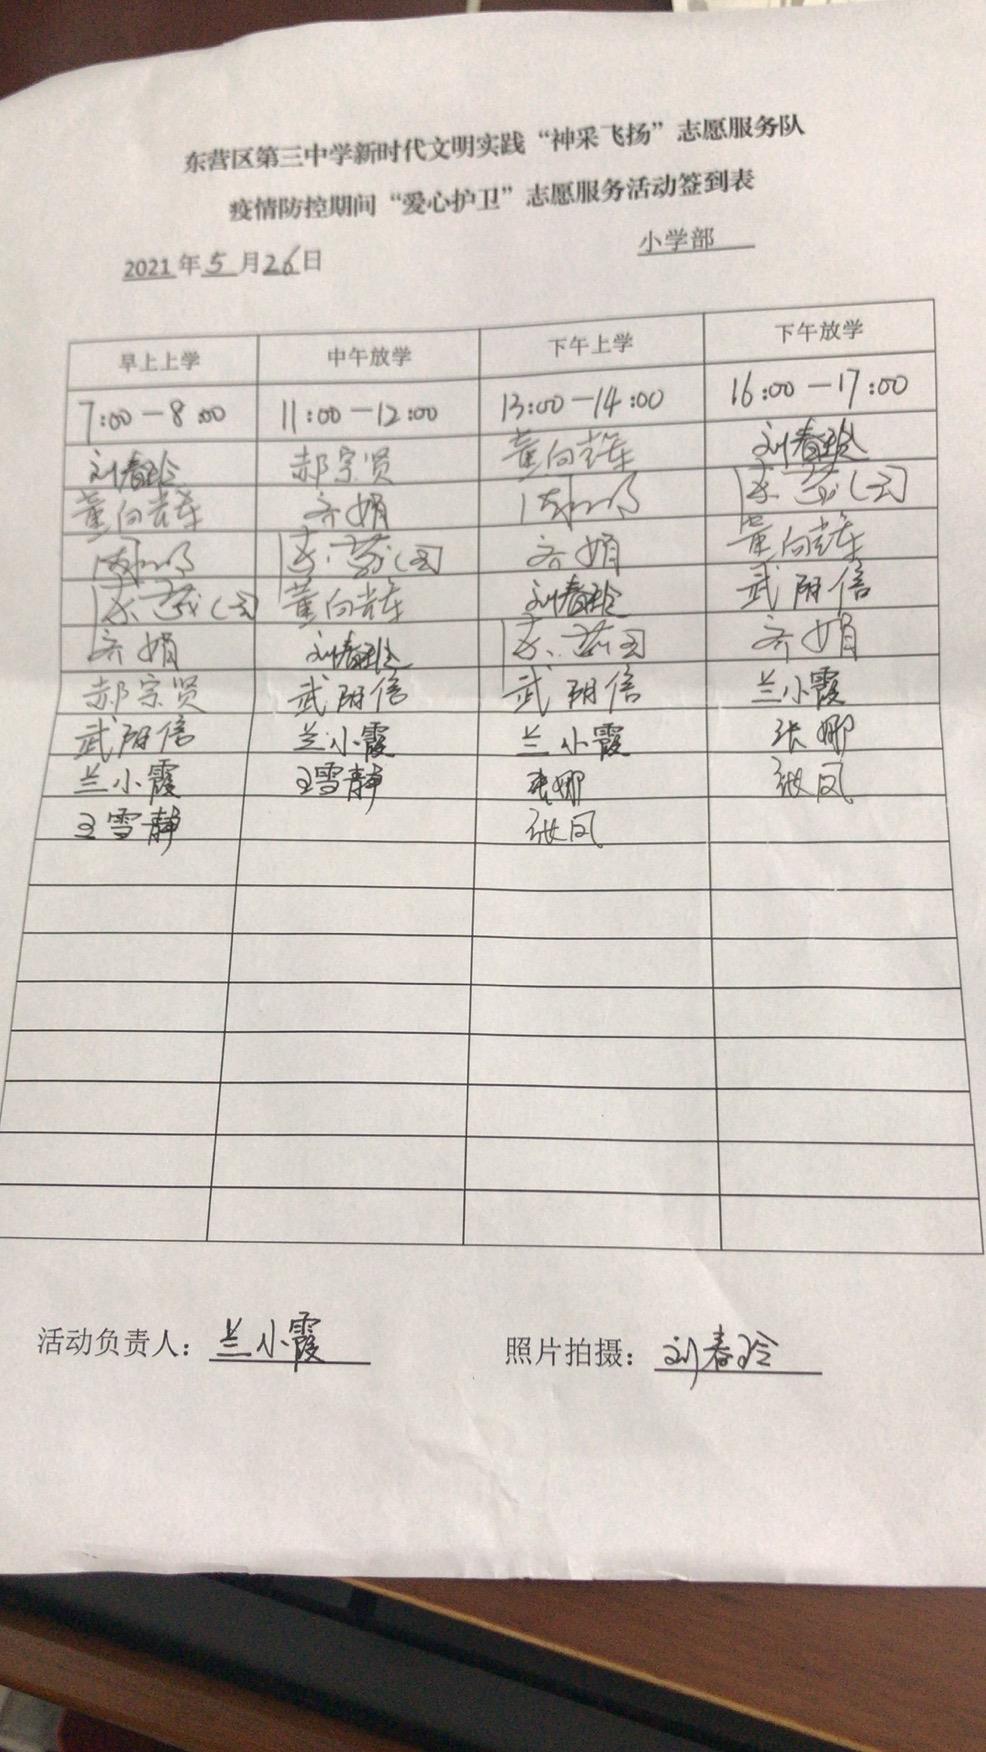 东营区第三中学新时代文明实践“神采飞扬”志愿服务队
疫情防控期间“爱心护卫”志愿服务活动签到表
2021年5月26日 小学部
早上上学 中午放学 下午上学 下午放学
7:00-8:00 11:00-12:00 13:00-14:00 16:00-17:00
刘春玲 郝宗贤 刘春玲
齐娟
齐娟
刘春玲 武阴信
齐娟 刘春玲 齐娟
郝宗贤 武阴信 武阴信 兰小霞
武阴信 兰小霞 兰小霞 张娜
兰小霞 王雪静 张娜 张凤
王雪静 张凤
活动负责人：兰小霞 照片拍摄：刘春玲